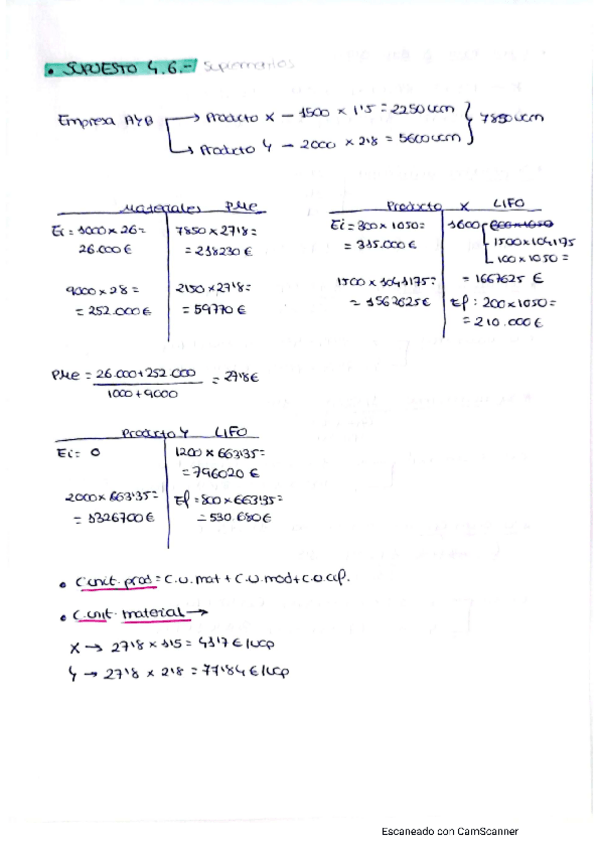 • SUPUESTO 4.6.- Supermarios
Empresa AYB → Producto X - 1500 × 1'5 = 2250 ucm
→ Producto Y - 2000 × 2'8 = 5600 ucm } 7850 ucm
Materiales PMe
Ei = 1000 × 26 = 7850 × 27'8 =
26.000 € = 218230 €
9000 × 28 = 2150 × 27'8 =
= 252.000 € = 59770 €
Producto X LIFO
Ei = 300 × 1050 = 1600
= 315.000 € 1500 × 1041'75
100 × 1050 =
1500 × 1041'75 = = 1667625 €
= 1562625 € Ef: 200 × 1050 =
= 210.000 €
PMe = 26.000 + 252.000 = 27'8 €
1000 + 9000
Producto Y LIFO
Ei = 0 1200 × 663'35 =
= 796020 €
2000 × 663'35 = Ef = 800 × 663'35 =
= 1326700 € = 530.680 €
• C.unit. prod = C.U. mat + C.U. mod + C.U. cip.
• C.unit. material →
X → 27'8 × 1'5 = 41'7 €/ucp
Y → 27'8 × 2'8 = 77'84 €/ucp
Escaneado con CamScanner